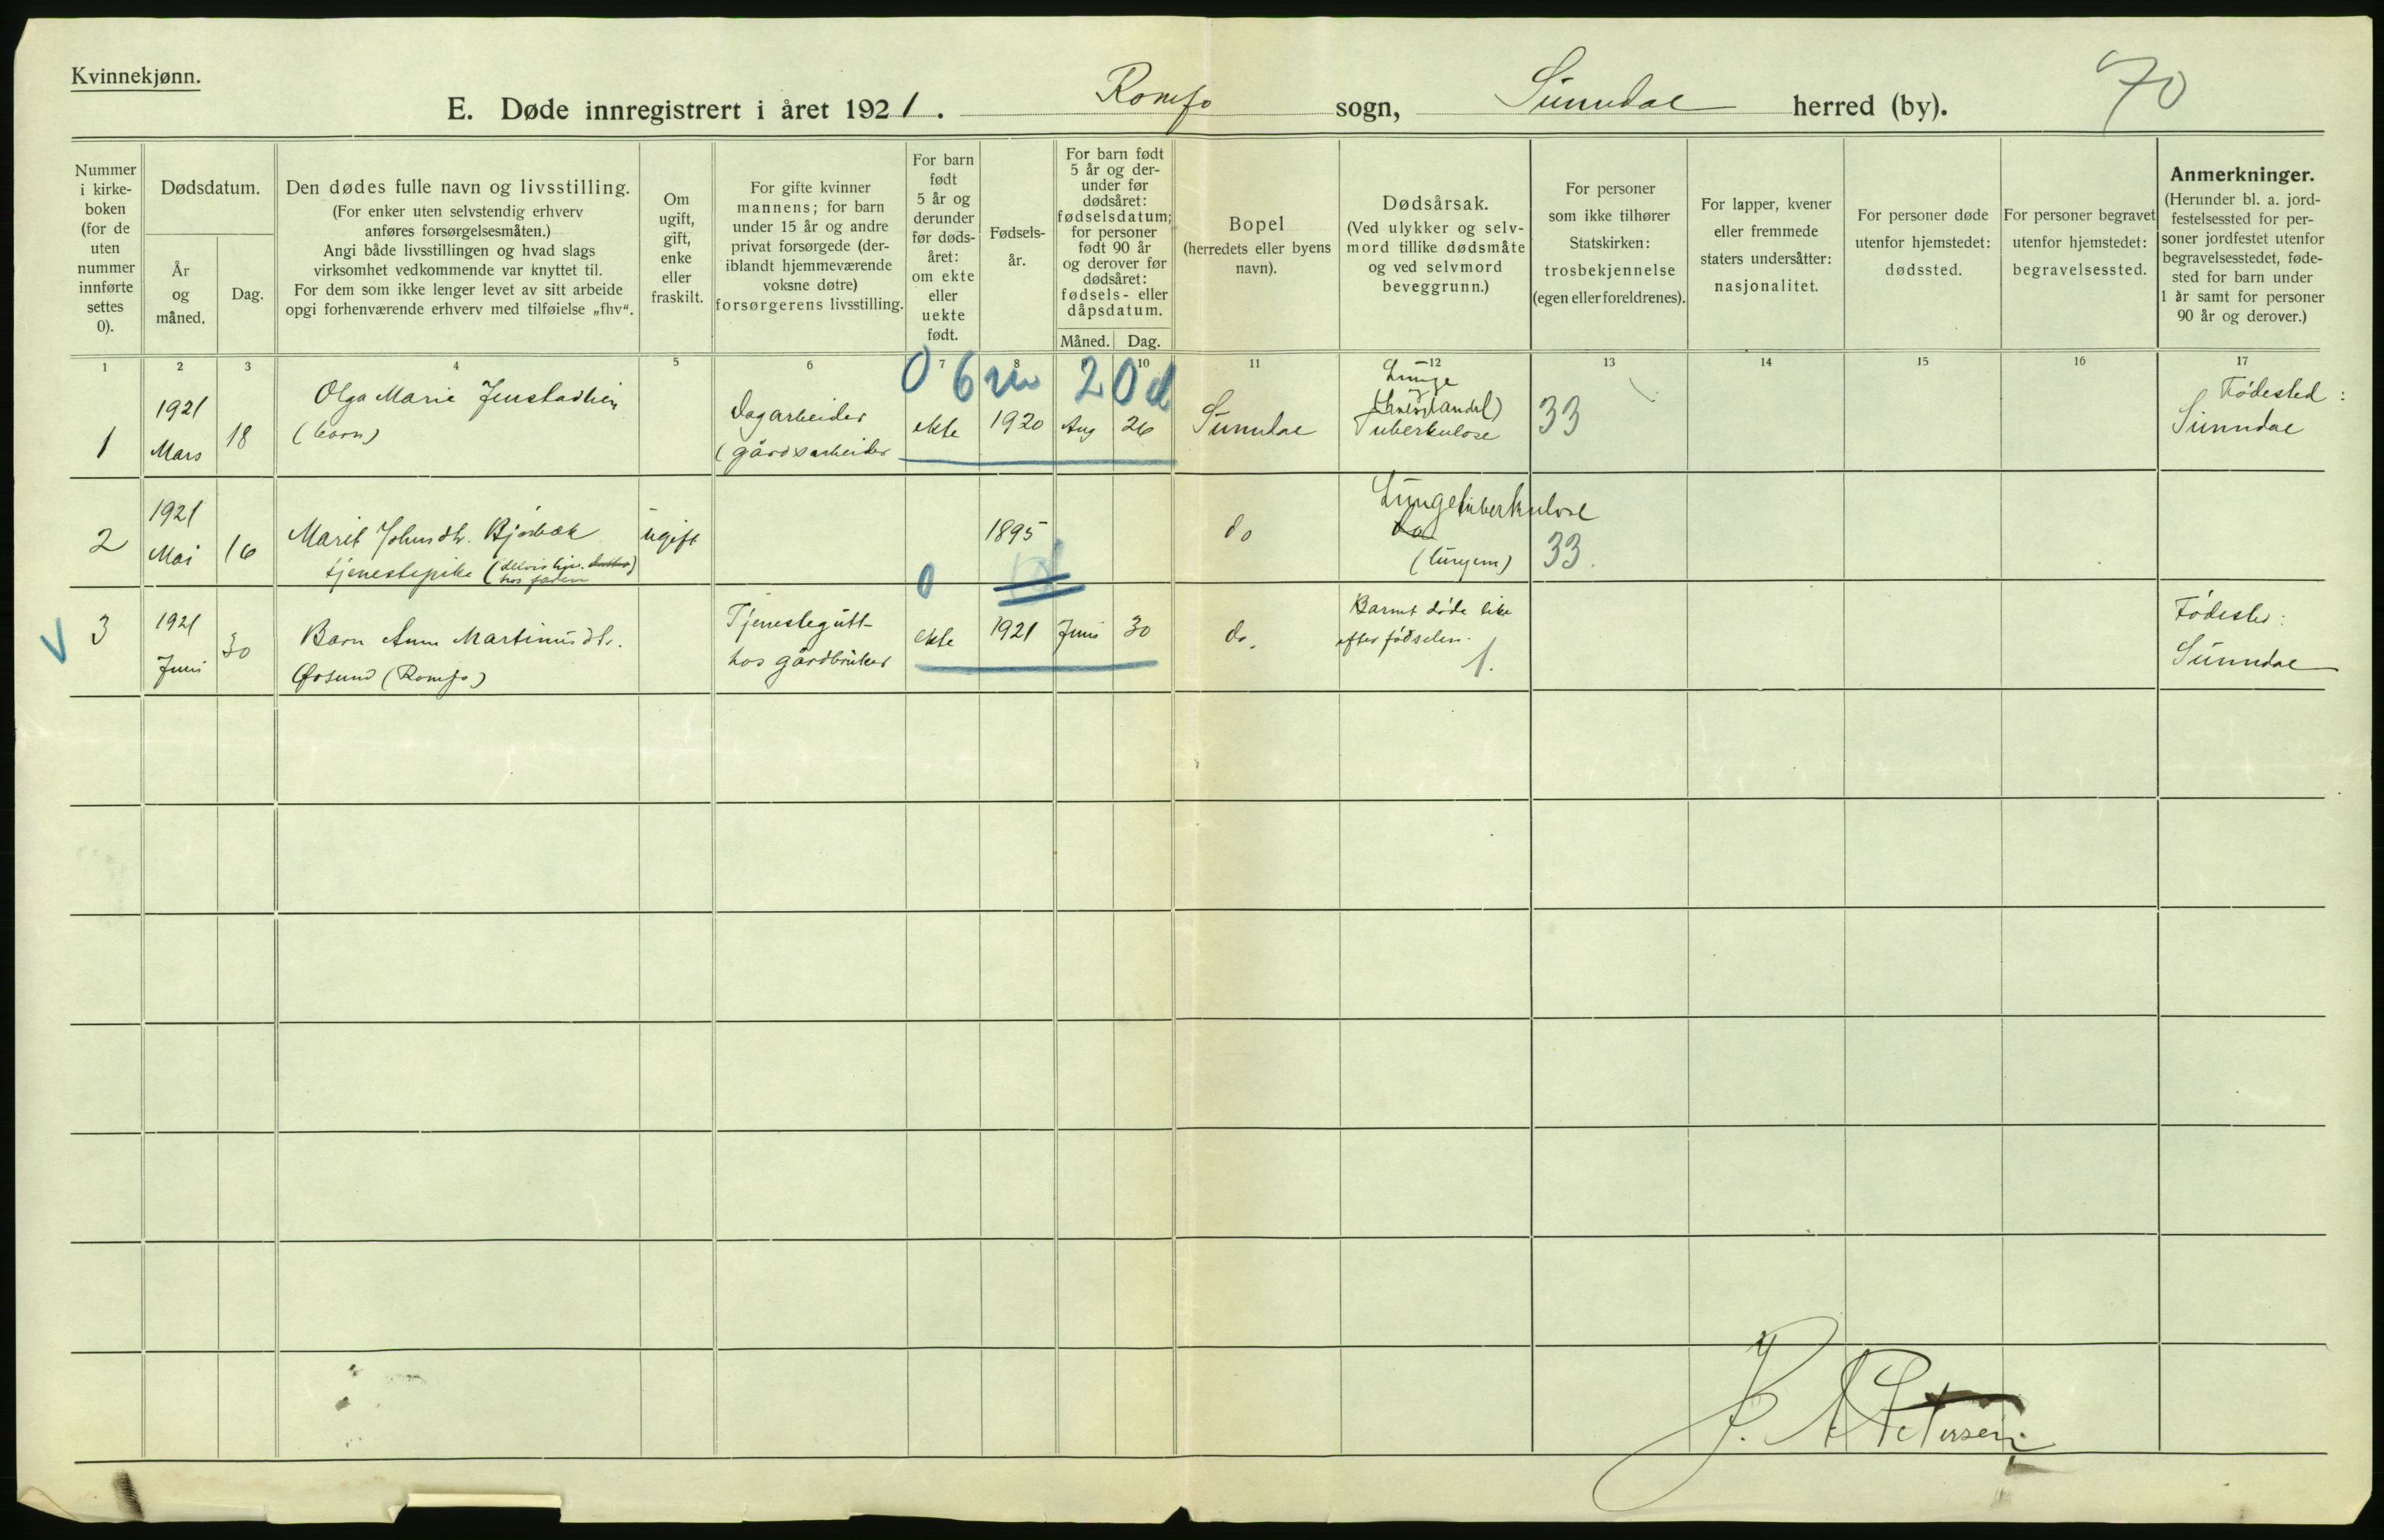 Kvinnekjønn.
E. Døde innregistrert i året 1921. Romfo sogn, Sunndal herred (by). 70
Nummer
i kirke-
boken
(for de
uten
nummer
innførte
settes
0).
Dødsdatum.
År
og
måned.
Dag.
Den dødes fulle navn og livsstilling.
(For enker uten selvstendig erhverv
anføres forsørgelsesmåten.)
Angi både livsstillingen og hvad slags
virksomhet vedkommende var knyttet til.
For dem som ikke lenger levet av sitt arbeide
opgi forhenværende erhverv med tilføielse „fhv“.
Om
ugift,
gift,
enke
eller
fraskilt.
For gifte kvinner
mannens; for barn
under 15 år og andre
privat forsørgede (der-
iblandt hjemmeværende
voksne døtre)
forsørgerens livsstilling.
For barn
født
5 år og
derunder
før døds-
året:
om ekte
eller
uekte
født.
Fødsels-
år.
For barn født
5 år og der-
under før
dødsåret:
fødselsdatum;
for personer
født 90 år
og derover før
dødsåret:
fødsels- eller
dåpsdatum.
Måned. Dag.
Bopel
(herredets eller byens
navn).
Dødsårsak.
(Ved ulykker og selv-
mord tillike dødsmåte
og ved selvmord
beveggrunn.)
For personer
som ikke tilhører
Statskirken:
trosbekjennelse
(egen eller foreldrenes).
For lapper, kvener
eller fremmede
staters undersåtter:
nasjonalitet.
For personer døde
utenfor hjemstedet:
dødssted.
For personer begravet
utenfor hjemstedet:
begravelsessted.
Anmerkninger.
(Herunder bl. a. jord-
festelsessted for per-
soner jordfestet utenfor
begravelsesstedet, føde-
sted for barn under
1 år samt for personer
90 år og derover.)
1 2 3 4 5 6 7 8 9 10 11 12 13 14 15 16 17
0 6m 20d
1
1921
Mars
18
Olga Marie Jenstadlien
(barn)
Dagarbeider
(gårdsarbeider
ekte
1920
Aug
26
Sunndal
Lunge
Tuberkulose
33
Fødested:
Sunndal
2
1921
Mai
16
Marit Johnsdtr. Bjørbæk
tjenestepike (delvis
hos faren
ugift
1895
do
Lungetuberkulose
do
(lungen)
33.
0
V
3
1921
Juni
30
Barn Anne Martinusdtr.
Øosund (Romfo)
Tjenestegutt
hos gårdbruker
ekte
1921
Juni
30
do.
Barnet døde like
efter fødselen.
1.
Fødested:
Sunndal
Petersen